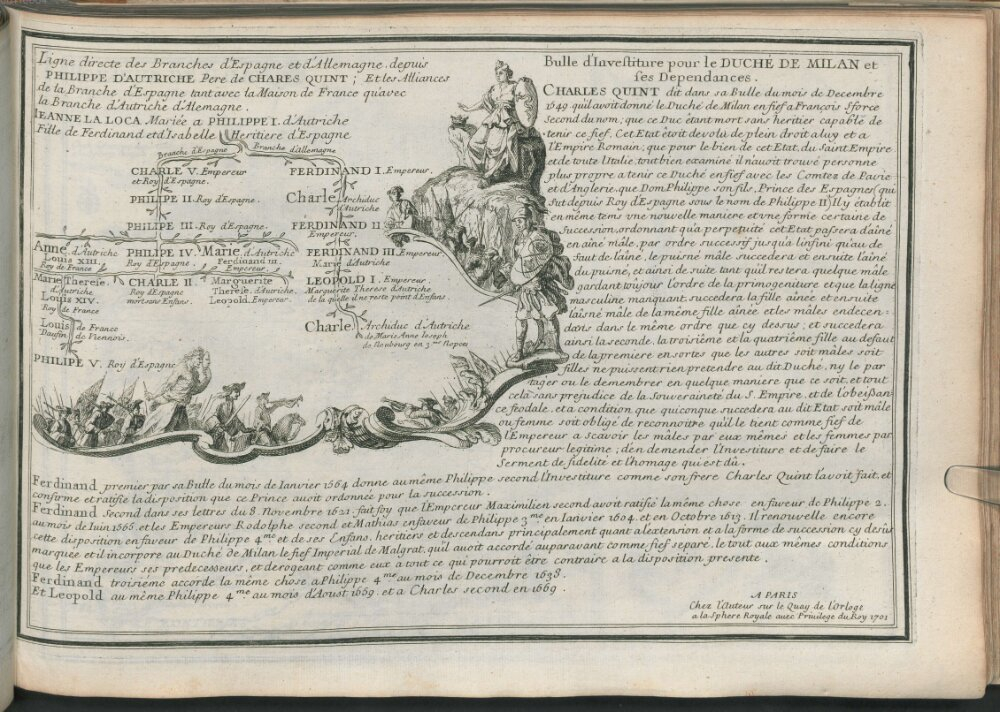 Ligne directe des Branches d'Espagne et d'Allemagne, depuis
PHILIPPE D'AUTRICHE Pere de CHARES QUINT ; Et les Alliances
de la Branche d'Espagne tant avec la Maison de France qu'avec
la Branche d'Autriche d'Alemagne.
IEANNE LA LOCA Mariée a PHILIPPE I. d'Autriche
Fille de Ferdinand et d'Isabelle Heritiere d'Espagne
Branche d'Espagne
Branche d'Allemagne
CHARLE V. Empereur
et Roy d'Espagne.
FERDINAND I. Empereur.
PHILIPE II. Roy d'Espagne.
Charle Archiduc
d'Autriche
PHILIPE III. Roy d'Espagne.
FERDINAND II
Empereur.
Anne d'Autriche
Louis XIII.
Roy de France
PHILIPE IV.
Roy d'Espagne.
Marie d'Autriche
Ferdinand III.
Empereur.
FERDINAND III. Empereur.
Marie d'Autriche
Marie Therese
d'Autriche
Louis XIV.
Roy de France
CHARLE II.
Roy d'Espagne
mort sans Enfans.
Marguerite
Therese d'Autriche.
Leopold. Empereur.
LEOPOLD I. Empereur.
Marguerite Therese d'Autriche
de la quelle il ne reste point d'Enfans
Louis de France
Daufin de Viennois.
Charle Archiduc d'Autriche
de Marie Anne Ioseph
de Neubourg en 3.mes Nopces
PHILIPE V. Roy d'Espagne
Bulle d'Investiture pour le DUCHÉ DE MILAN et
ses Dependances.
CHARLES QUINT dit dans sa Bulle du mois de Decembre
1549 qu'il avoit donné le Duché de Milan en fief a François Sforce
Second du nom; que ce Duc étant mort sans heritier capable de
tenir ce fief, Cet Etat étoit devolu de plein droit a luy et a
l'Empire Romain; que pour le bien de cet Etat, du Saint Empire
et de toute l'Italie, tout bien examiné il n'avoit trouvé personne
plus propre a tenir ce Duché en fief avec les Comtez de Pavie
et d'Anglerie, que Dom Philippe son fils, Prince des Espagnes (qui
fut depuis Roy d'Espagne sous le nom de Philippe II) Il y établit
en même tems vne nouvelle maniere et vne forme certaine de
Succession, ordonnant qu'a perpetuité cet Etat passera d'aîné
en aîné mâle, par ordre successif jusqu'a l'infini qu'au de
faut de l'aîné, le puisné mâle succedera et ensuite l'aîné
du puisné, et ainsi de suite tant qu'il restera quelque mâle
gardant toujour l'ordre de la primogeniture et que la ligne
masculine manquant, succedera la fille aînée et ensuite
l'aîsné mâle de la même fille aînée et les mâles en decen-
dans dans le même ordre que cy dessus; et succedera
ainsi la seconde, la troisième et la quatrième fille au defaut
de la premiere en sortes que les autres soit mâles soit
filles ne puissent rien pretendre au dit Duché, ny le par
tager ou le demembrer en quelque maniere que ce soit, et tout
cela sans prejudice de la Souveraineté du S. Empire, et de l'obeißan-
ce feodale, et a condition que quiconque succedera au dit Etat soit mâle
ou femme soit obligé de reconnoitre qu'il le tient comme fief de
l'Empereur a scavoir les mâles par eux mêmes et les femmes par
procureur legitime; d'en demender l'Investiture et de faire le
Serment de fidelité et l'homage qui est dû.
Ferdinand premier par sa Bulle du mois de Ianvier 1564 donne au même Philippe second l'Investiture comme son frere Charles Quint l'avoit fait, et
confirme et ratifie la disposition que ce Prince avoit ordonnée pour la succession.
Ferdinand Second dans ses lettres du 8. Novembre 1621. fait foy que l'Empereur Maximilien second avoit ratifié la même chose en faveur de Philippe 2.
au mois de Iuin 1565. et les Empereurs Rodolphe second et Mathias en faveur de Philippe 3.me en Ianvier 1604. et en Octobre 1613. Il renouvelle encore
cette disposition en faveur de Philippe 4.me et de ses Enfans, heritiers et descendans principalement quant a l'extension et a la forme de succession cy desus
marquee et il incorpore au Duché de Milan le fief Imperial de Malgrat, qu'il avoit accordé auparavant comme fief separé, le tout aux mêmes conditions
que les Empereurs ses predecesseurs, et derogeant comme eux a tout ce qui pourroit être contraire a la disposition presente.
Ferdinand troisiéme accorde la même chose a Philippe 4.me au mois de Decembre 1638.
Et Leopold au même Philippe 4.me au mois d'Aoust 1659. et a Charles second en 1669.
A PARIS
Chez l'Auteur sur le Quay de l'Orloge
a la Sphere Royale avec Privilege du Roy 1701